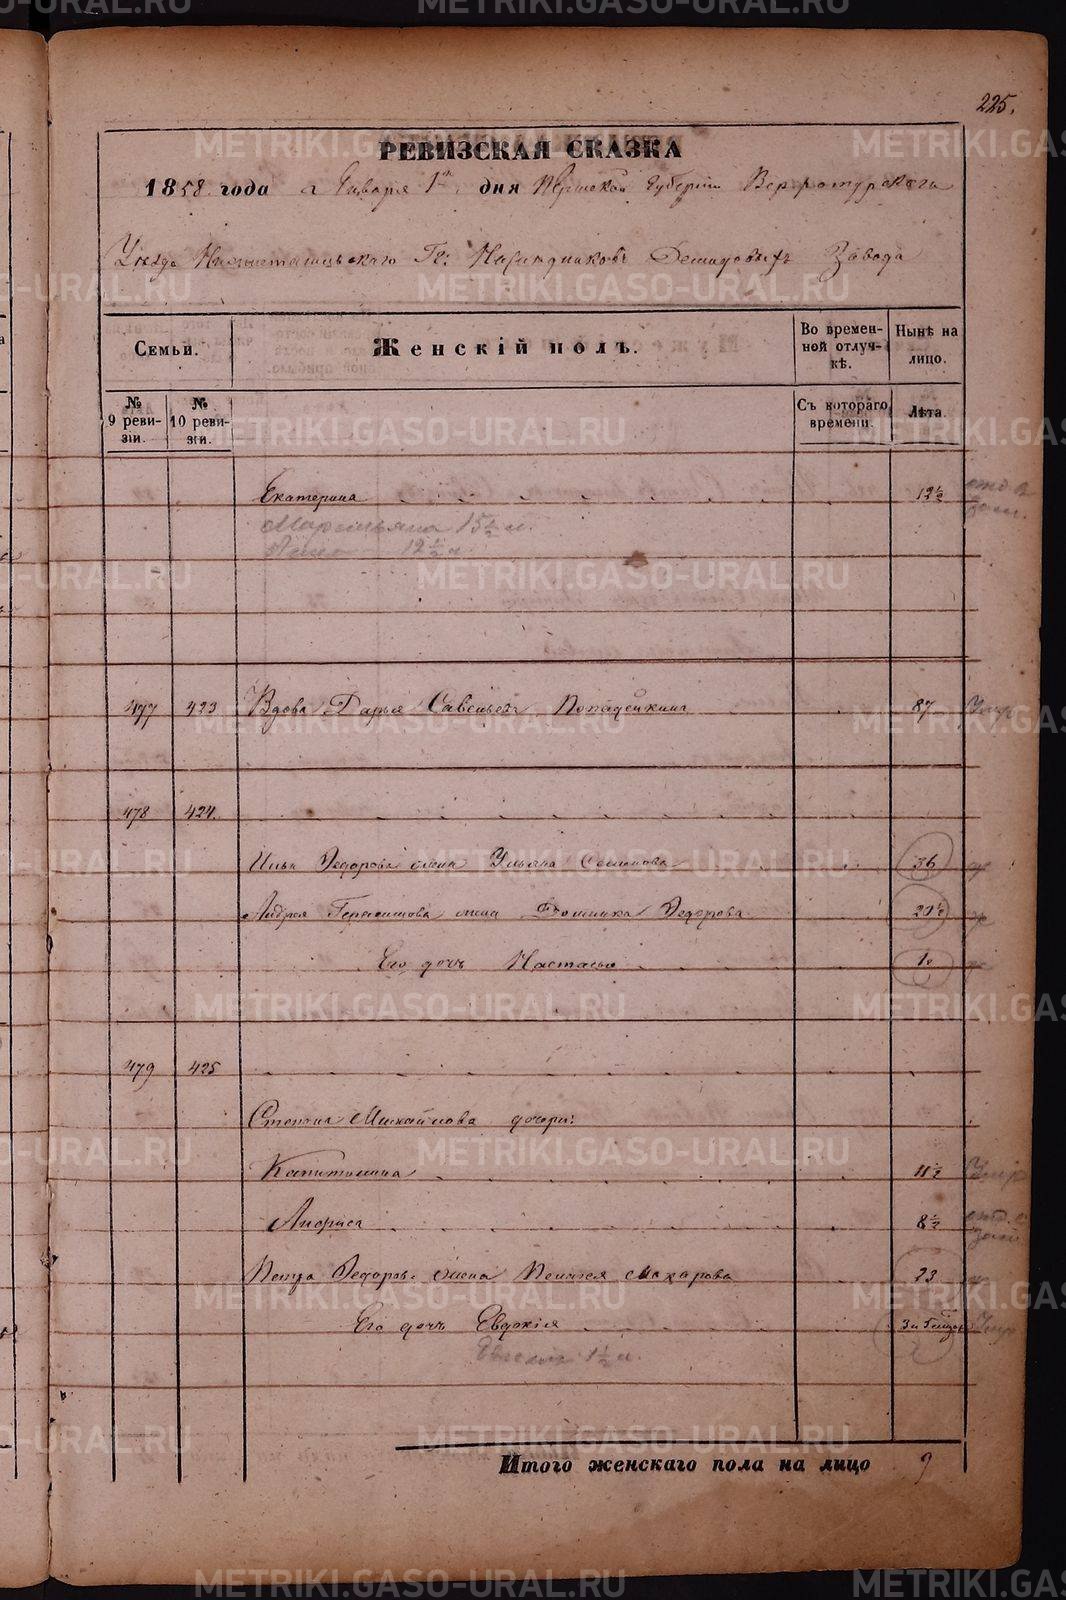 225.
РЕВИЗСКАЯ СКАЗКА
1858 года Января 1го дня Пермской Губерніи Верхотурскаго
Уѣзда Нижнетагильскаго Гг: Наслѣдниковъ Демидовыхъ Завода
Семьи.
Женскій полъ.
Во времен-
ной отлуч-
кѣ.
Нынѣ на
лицо.
№
9 реви-
зіи.
№
10 реви-
зіи.
Съ котораго
времени.
Лѣта.
Екатерина 12½
15½ л.
12½ л.
477 423 Вдова Дарья Савельева 87 Умр
478 424.
Ильи Федорова жена Ульяна Семенова 36
Андрея Герасимова жена Домника Федорова 20½
Его дочь Настасья
479 425
Степана Михайлова дочери:
Капитолина 11½ Умр
Анфиса 8½
Петра Федорова жена Пелагея Макарова 23
Его дочь Евдокія Умр
1½ л.
Итого женскаго пола на лицо 9
METRIKI.GASO-URAL.RU